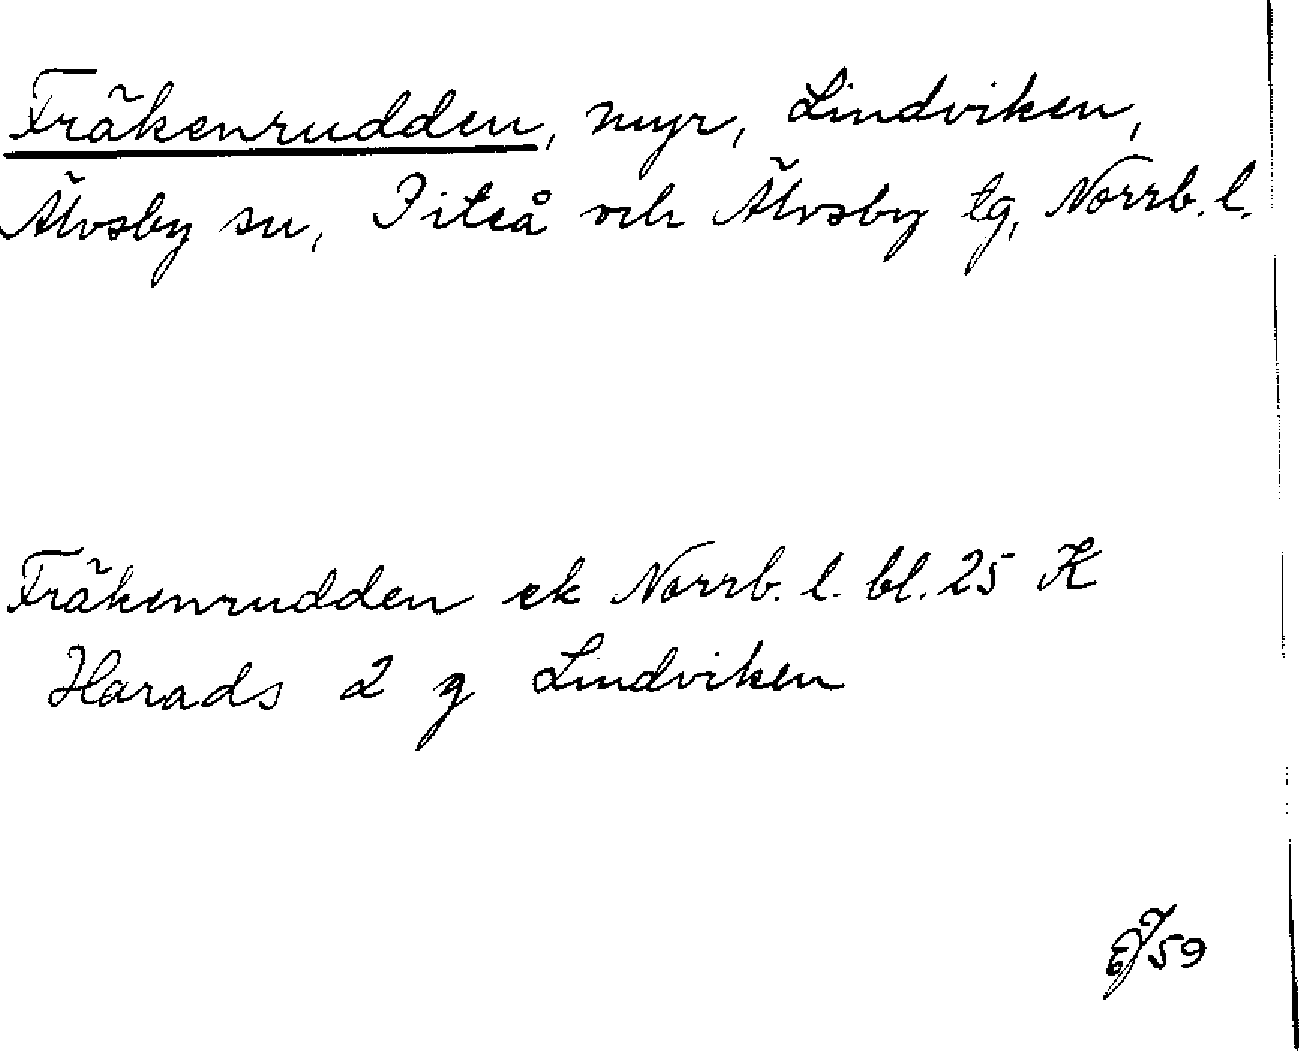 Fräkenrudden, myr, Lindviken,
Älvsby sn, Piteå och Älvsby tg, Norrb. l.
Fräkenrudden ek Norrb. l. bl. 25 K
Harads 2 g Lindviken
59